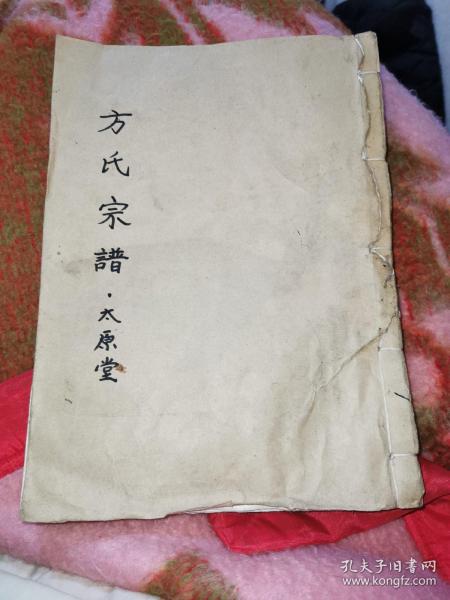 方氏宗譜·太原堂
孔夫子旧书网
www.kongfz.com